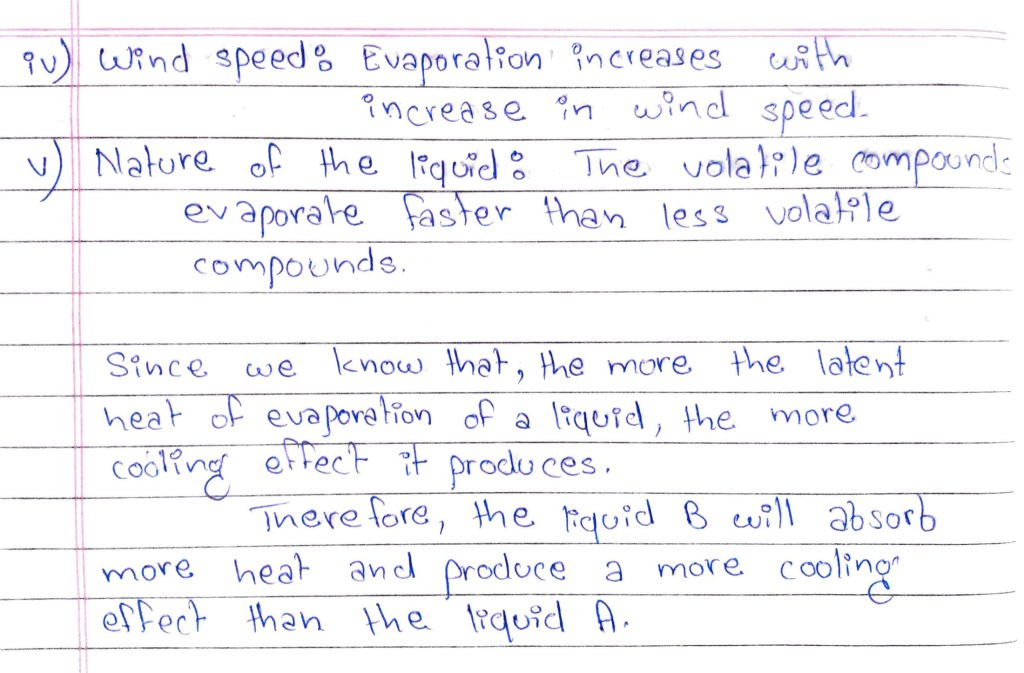 iv) Wind speed: Evaporation increases with
increase in wind speed.
v) Nature of the liquid: The volatile compounds
evaporate faster than less volatile
compounds.
Since we know that, the more the latent
heat of evaporation of a liquid, the more
cooling effect it produces.
Therefore, the liquid B will absorb
more heat and produce a more cooling
effect than the liquid A.